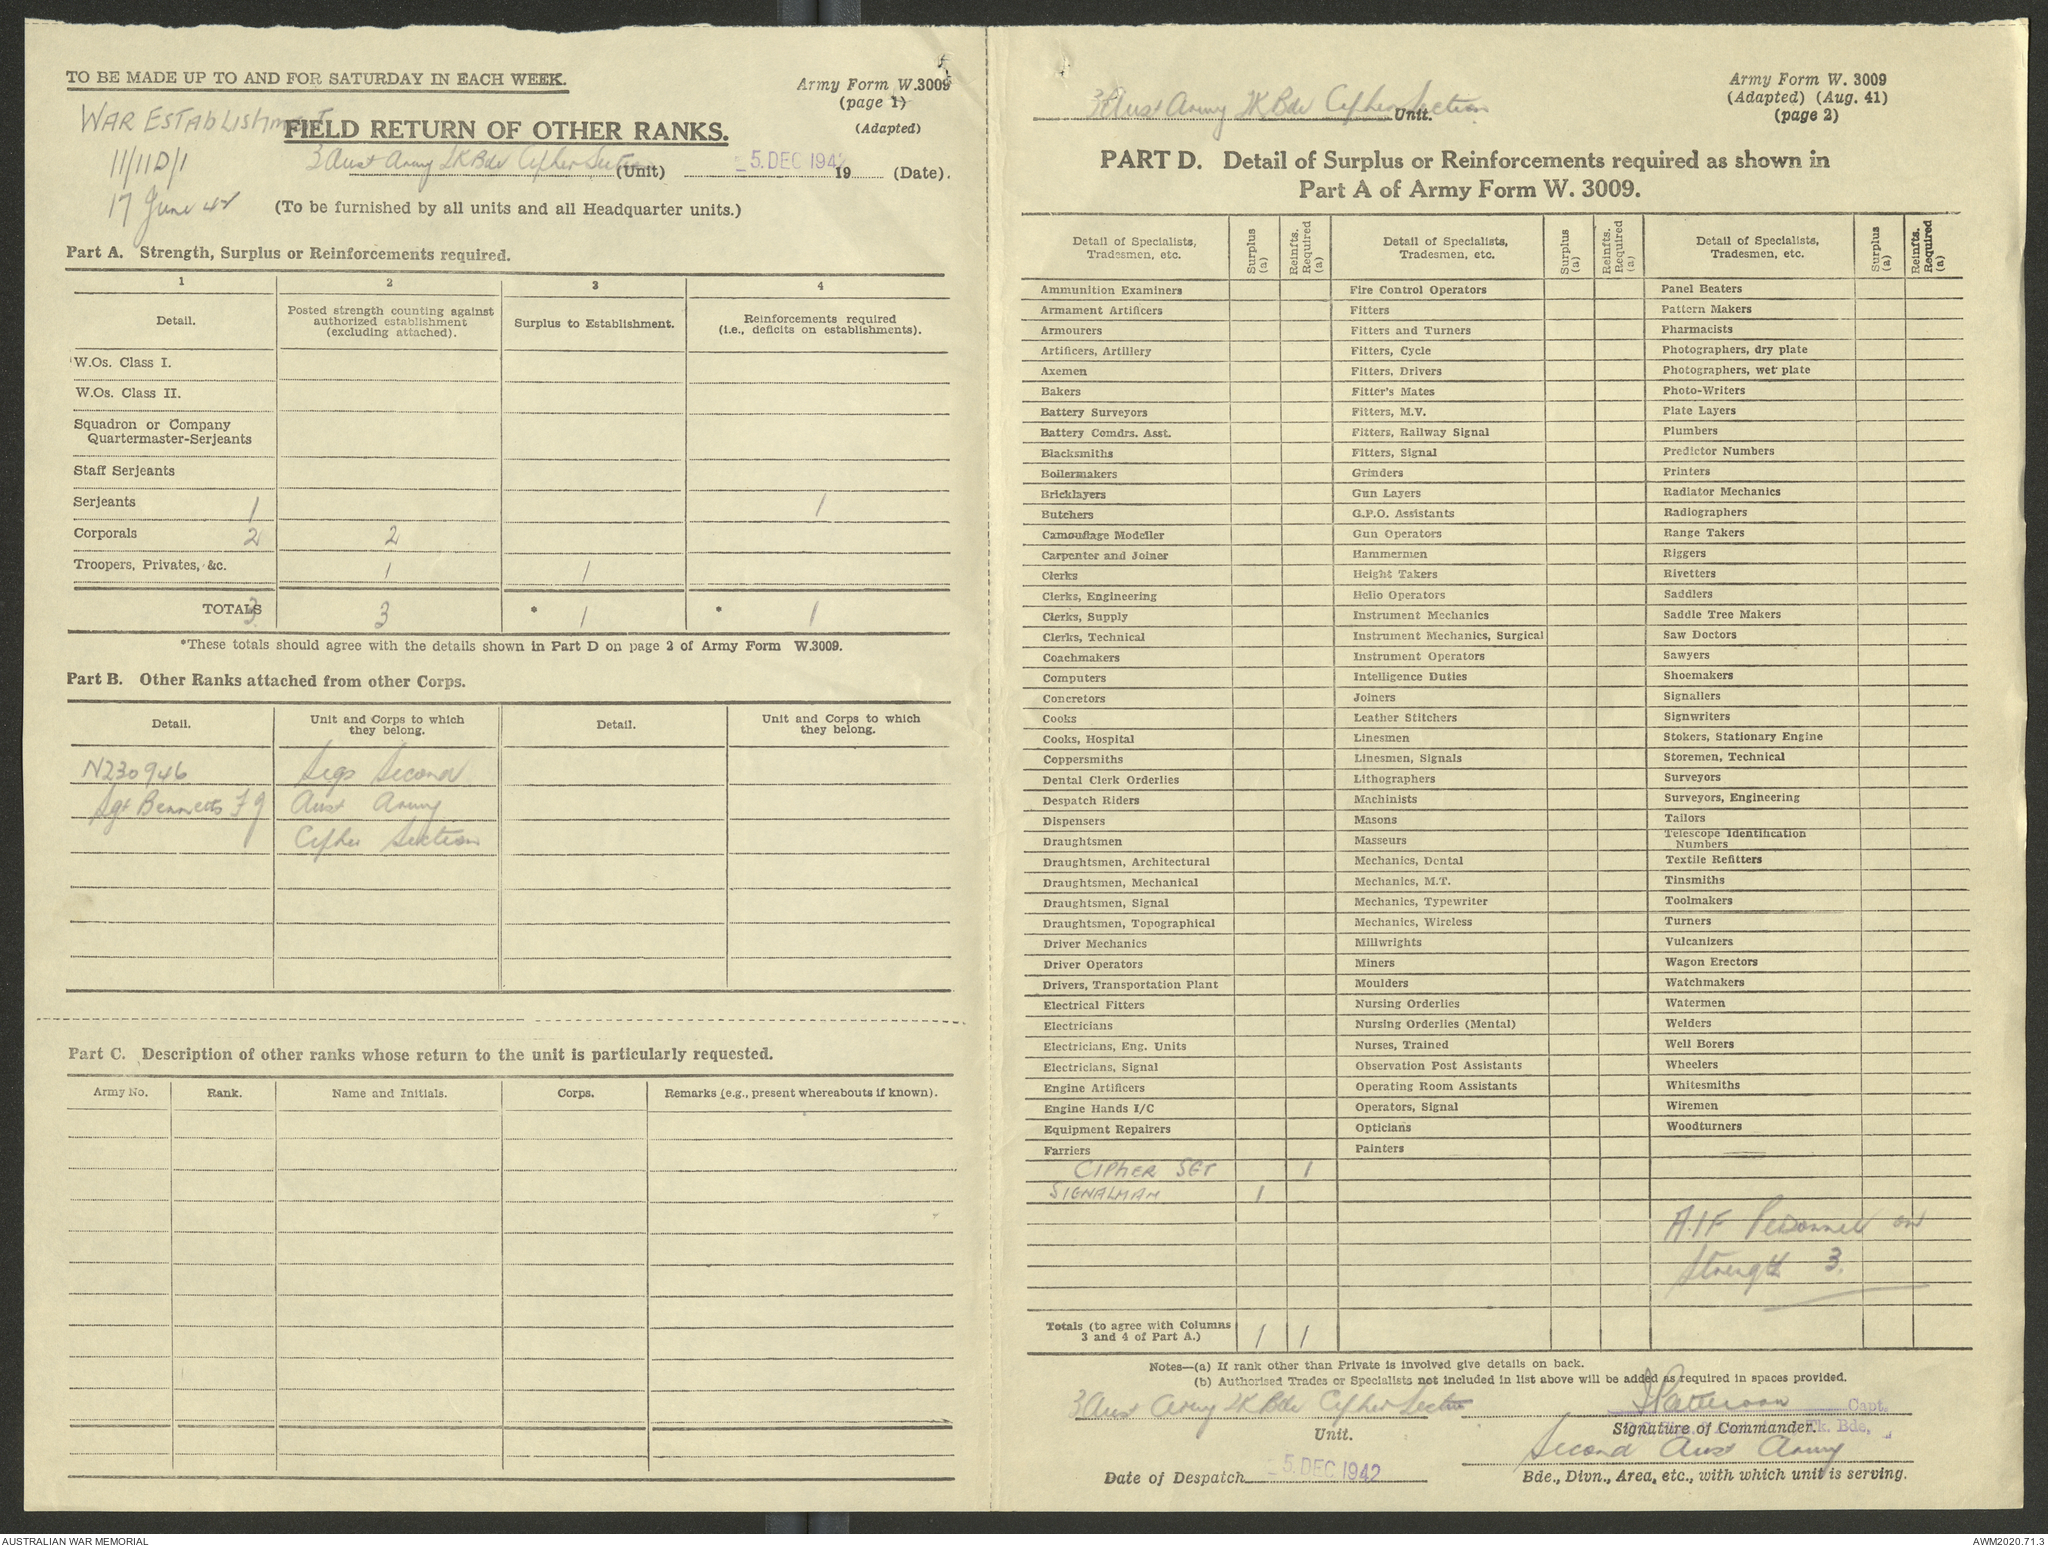 TO BE MADE UP TO AND FOR SATURDAY IN EACH WEEK.
Army Form W.3009
(page 1)
(Adapted)
WAR ESTABLISHMENT
11/11D/1
17 June 42
FIELD RETURN OF OTHER RANKS.
3 Aust Army TK Bde Cipher Section (Unit) 5. DEC 1942 19 (Date).
(To be furnished by all units and all Headquarter units.)
Part A. Strength, Surplus or Reinforcements required.
1 2 3 4
Detail. Posted strength counting against authorized establishment (excluding attached). Surplus to Establishment. Reinforcements required (i.e., deficits on establishments).
W.Os. Class I.
W.Os. Class II.
Squadron or Company
Quartermaster-Serjeants
Staff Serjeants
Serjeants 1 1
Corporals 2 2
Troopers, Privates, &c. 1 1
TOTALS 3 3 * 1 * 1
*These totals should agree with the details shown in Part D on page 2 of Army Form W.3009.
Part B. Other Ranks attached from other Corps.
Detail. Unit and Corps to which they belong. Detail. Unit and Corps to which they belong.
N230946 Sigs Second
Sgt Bennetts F J Aust Army
Cipher Section
Part C. Description of other ranks whose return to the unit is particularly requested.
Army No. Rank. Name and Initials. Corps. Remarks (e.g., present whereabouts if known).
3 Aust Army TK Bde Cipher Section Unit.
Army Form W. 3009
(Adapted) (Aug. 41)
(page 2)
PART D. Detail of Surplus or Reinforcements required as shown in
Part A of Army Form W. 3009.
Detail of Specialists, Tradesmen, etc. Surplus (a) Reinfts. Required (a) Detail of Specialists, Tradesmen, etc. Surplus (a) Reinfts. Required (a) Detail of Specialists, Tradesmen, etc. Surplus (a) Reinfts. Required (a)
Ammunition Examiners Fire Control Operators Panel Beaters
Armament Artificers Fitters Pattern Makers
Armourers Fitters and Turners Pharmacists
Artificers, Artillery Fitters, Cycle Photographers, dry plate
Axemen Fitters, Drivers Photographers, wet plate
Bakers Fitter's Mates Photo-Writers
Battery Surveyors Fitters, M.V. Plate Layers
Battery Comdrs. Asst. Fitters, Railway Signal Plumbers
Blacksmiths Fitters, Signal Predictor Numbers
Boilermakers Grinders Printers
Bricklayers Gun Layers Radiator Mechanics
Butchers G.P.O. Assistants Radiographers
Camouflage Modeller Gun Operators Range Takers
Carpenter and Joiner Hammermen Riggers
Clerks Height Takers Rivetters
Clerks, Engineering Helio Operators Saddlers
Clerks, Supply Instrument Mechanics Saddle Tree Makers
Clerks, Technical Instrument Mechanics, Surgical Saw Doctors
Coachmakers Instrument Operators Sawyers
Computers Intelligence Duties Shoemakers
Concretors Joiners Signallers
Cooks Leather Stitchers Signwriters
Cooks, Hospital Linesmen Stokers, Stationary Engine
Coppersmiths Linesmen, Signals Storemen, Technical
Dental Clerk Orderlies Lithographers Surveyors
Despatch Riders Machinists Surveyors, Engineering
Dispensers Masons Tailors
Draughtsmen Masseurs Telescope Identification Numbers
Draughtsmen, Architectural Mechanics, Dental Textile Refitters
Draughtsmen, Mechanical Mechanics, M.T. Tinsmiths
Draughtsmen, Signal Mechanics, Typewriter Toolmakers
Draughtsmen, Topographical Mechanics, Wireless Turners
Driver Mechanics Millwrights Vulcanizers
Driver Operators Miners Wagon Erectors
Drivers, Transportation Plant Moulders Watchmakers
Electrical Fitters Nursing Orderlies Watermen
Electricians Nursing Orderlies (Mental) Welders
Electricians, Eng. Units Nurses, Trained Well Borers
Electricians, Signal Observation Post Assistants Wheelers
Engine Artificers Operating Room Assistants Whitesmiths
Engine Hands I/C Operators, Signal Wiremen
Equipment Repairers Opticians Woodturners
Farriers Painters
CIPHER SGT 1
SIGNALMAN 1
A.I.F Personnel on
Strength 3.
Totals (to agree with Columns 3 and 4 of Part A.) 1 1
Notes—(a) If rank other than Private is involved give details on back.
(b) Authorised Trades or Specialists not included in list above will be added as required in spaces provided.
3 Aust Army TK Bde Cipher Section Patterson Capt.
Unit. Signature of Commander. Tk. Bde,
Second Aust Army
Date of Despatch 5. DEC 1942 Bde., Divn., Area, etc., with which unit is serving.
AUSTRALIAN WAR MEMORIAL
AWM2020.71.3